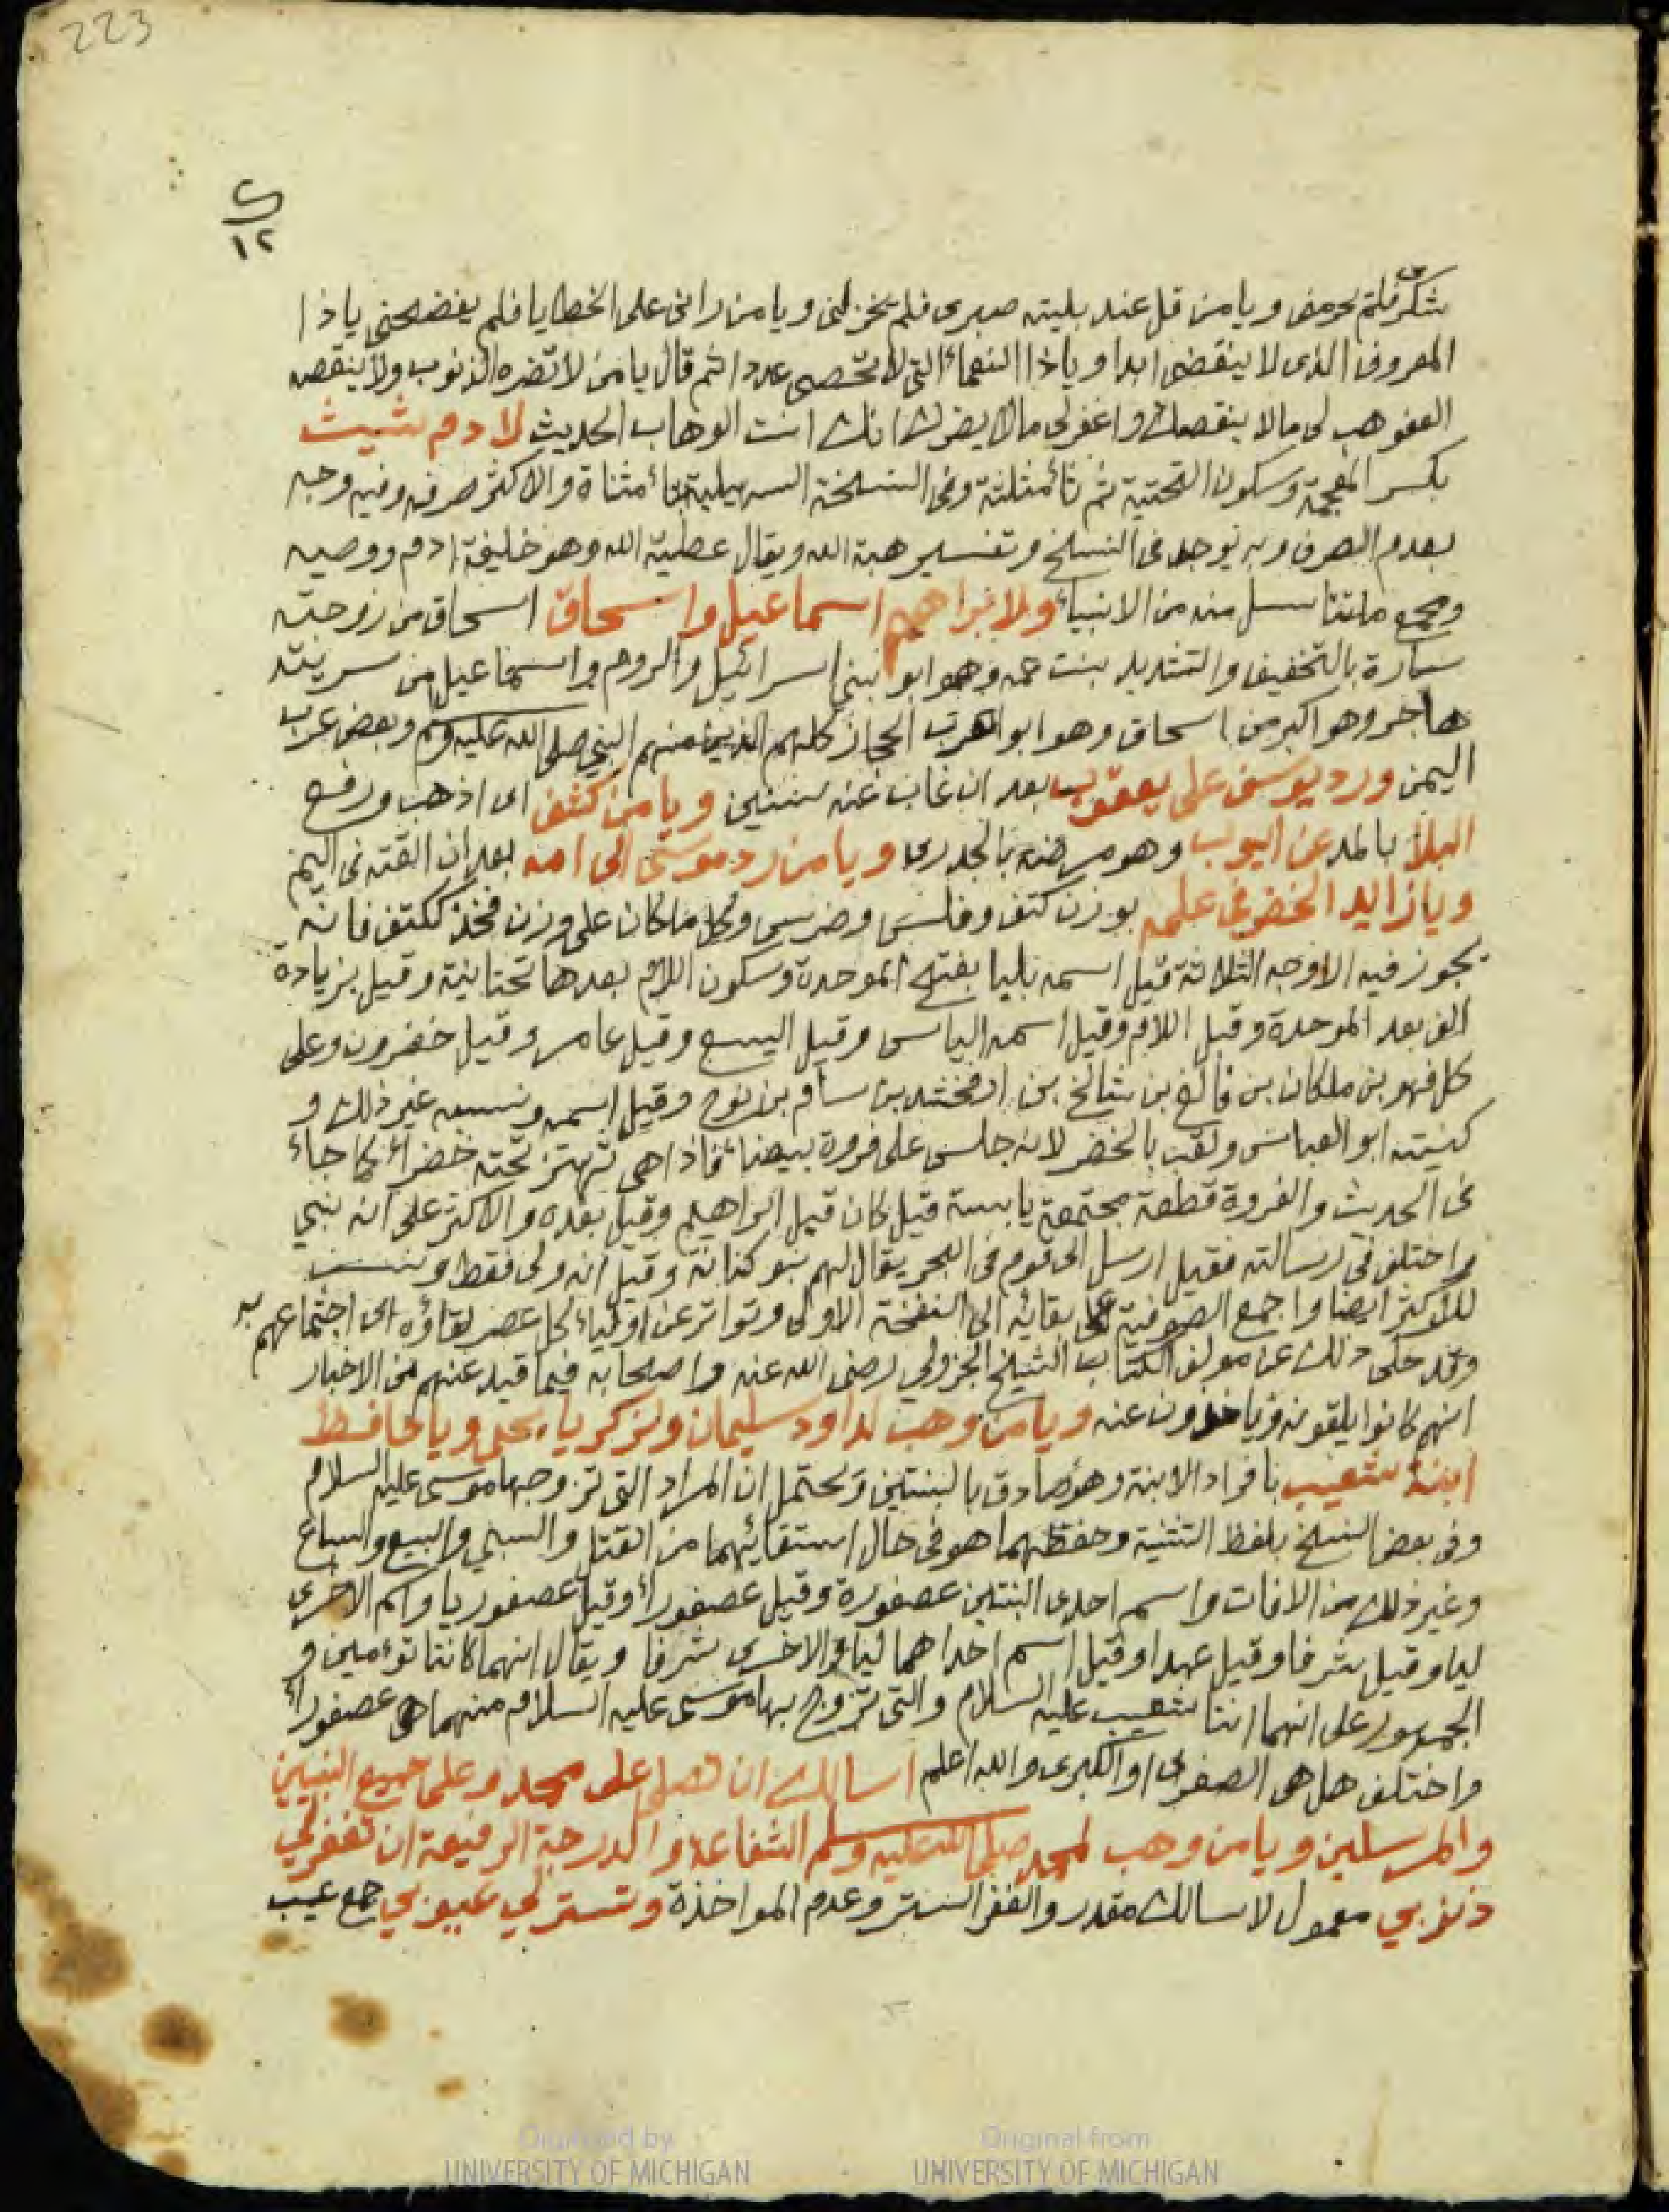 223
ک
١٢
شكرى فلم يحرمنى ويا من قل عند بليته صبرى فلم يخذلنى ويا من رانى على الخطايا فلم يفضحنى ياذا
المعروف الذى لا ينقضى ابدا وياذا النعمائ التى لا تحصى عددا ثم قال يا من لا تضره الذنوب ولا ينقصه
العفو هب لى مالا ينقصك واغفر لى مالا يضرك انك انت الوهاب الحديث لادم شيث
بكسر المعجمة وسكون التحتية ثم ثائ مثلثة وفى النسخة السهيلية بتائ مثناة والاكثر صرفه وفيه وجه
بعدم الصرف وبه يوجد فى النسخ وتفسير هبة الله ويقال عطية الله وهو خليفة ادم ووصيه
ومجمع ما تناسل منه من الانبيائ ولابراهيم اسماعيل واسحاق اسحاق من زوجته
سارة بالتخفيف والتشديد بنت عمه وهو ابو بنى اسرائيل والروم واسماعيل من سريته
هاجر وهو اكبر من اسحاق وهو ابو العرب الحجاز كلهم الذين منهم النبي صلى الله عليه وسلم وبعض عرب
اليمن ورد يوسف على يعقوب بعد ان غاب عنه سنين ويا من كشف اى اذهب ورفع
البلائ بالمد عن ايوب وهو مرضه بالجدرى ويا من رد موسى الى امه بعد ان القته فى اليم
ويا زايد الخضر فى علمه بوزن كتف وفلس وضرس وكل ما كان على وزن فخذ ككتف فانه
يجوز فيه الاوجه الثلاثة قيل اسمه بليا بفتح الموحدة وسكون اللام بعدها تحتانية وقيل بزيادة
الف بعد الموحدة وقيل اللام وقيل اسمه الياس وقيل اليسع وقيل عامر وقيل خضرون وعلى
كل فهو بن ملكان بن فالغ بن شالخ بن ارفخشد بن سام بن نوح وقيل اسمه ونسبه غير ذلك و
كنيته ابو العباس ولقب بالخضر لانه جلس على فروة بيضائ فاذا هى تهتز تحته خضرائ كما جائ
فى الحديث والفروة قطعة مجتمعة يابسة قيل كان قبل ابراهيم وقيل بعده والاكثر على انه نبي
واختلف فى رسالته فقيل ارسل الى قوم فى البحر يقال لهم بنو كنانة وقيل انه ولى فقط ونسب
للاكثر ايضا واجمع الصوفية على بقائه الى النفخة الاولى وتواتر عن اوليائ كل عصر لقاؤه اى اجتماعهم به
وقد حكى ذلك عن مولف الكتاب الشيخ الجزولي رضى الله عنه واصحابه فيما قيد عنهم من الاخبار
انهم كانوا يلقونه وياخذون عنه ويا من وهب لداود سليمان ولزكريا يحيى ويا حافظ
ابنة شعيب بافراد الابنة وهو صادق بالبنتين ويحتمل ان المراد التى تزوجها موسى عليه السلام
وفى بعض النسخ بلفظ التثنية وحفظهما هو فى حال استقائهما من القتل والسبي والبيع والسباع
وغير ذلك من الافات واسم احدى البنتين عصفورة وقيل عصفورائ وقيل عصفوريا واسم الاخرى
ليا وقيل شرفا وقيل عهدا وقيل اسم احداهما ليا والاخرى شرفا ويقال انهما كانتا توءمين و
الجمهور على انهما ابنتا شعيب عليه السلام والتى تزوج بها موسى عليه السلام منهما هى عصفورائ
واختلف هل هى الصغرى او الكبرى والله اعلم اسالك ان تصلى على محمد وعلى جميع النبيين
والمرسلين ويا من وهب لمحمد صلى الله عليه وسلم الشفاعة والدرجة الرفيعة ان تغفر لي
ذنوبي معمول لاسالك مقدر والغفر الستر وعدم المواخذة وتستر لي عيوبي جمع عيب
Digitized by
UNIVERSITY OF MICHIGAN
Original from
UNIVERSITY OF MICHIGAN